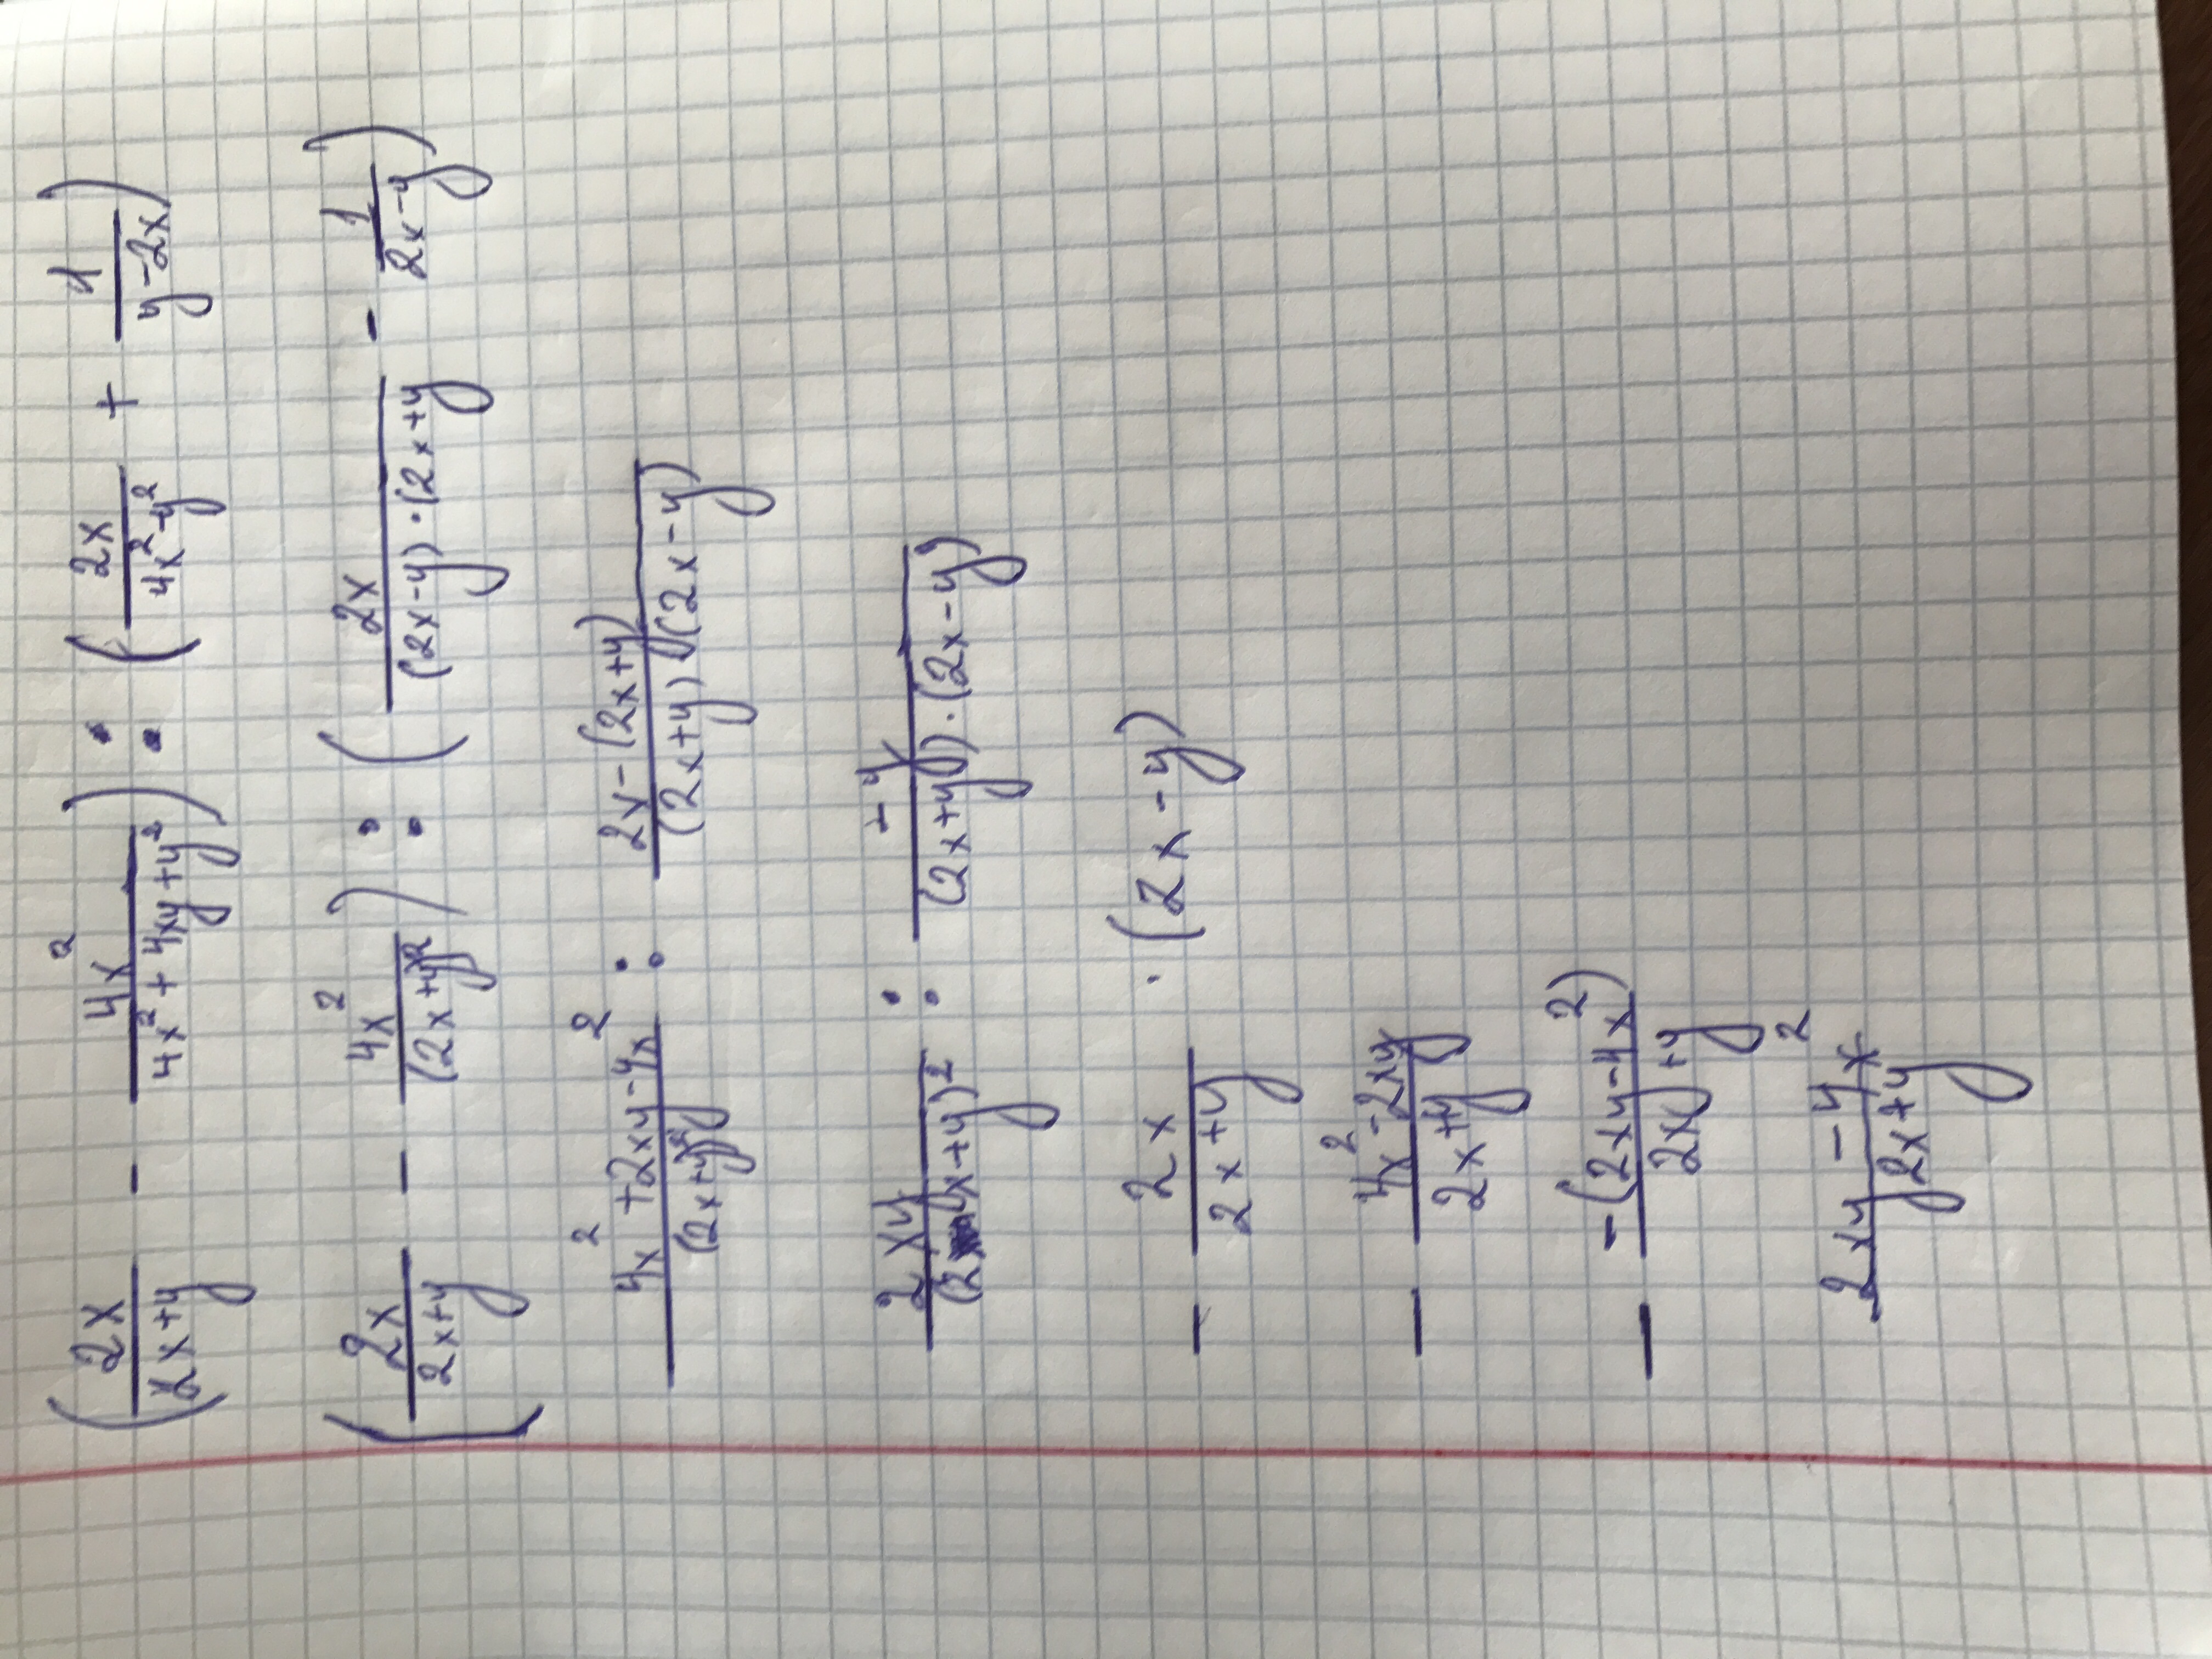 (2x/(2x+y) - 4x²/(4x²+4xy+y²)) : (2x/(4x²-y²) + 1/(y-2x))
(2x/(2x+y) - 4x²/(2x+y)²) : (2x/((2x-y)·(2x+y) - 1/(2x-y))
(4x²+2xy-4x²)/(2x+y)² : (2x-(2x+y))/((2x+y)(2x-y))
2xy/(2x+y)² : -y/((2x+y)·(2x-y))
- 2x/(2x+y) · (2x-y)
- (4x²-2xy)/(2x+y)
- -(2xy-4x²)/(2x+y)
(2xy-4x²)/(2x+y)